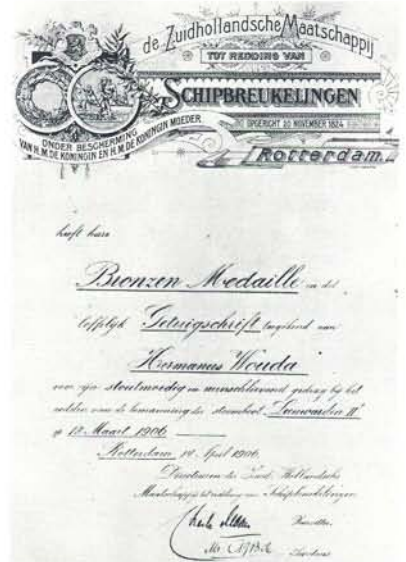 de Zuidhollandsche Maatschappij
TOT REDDING VAN
SCHIPBREUKELINGEN
OPGERICHT 20 NOVEMBER 1824
ONDER BESCHERMING
VAN H.M. DE KONINGIN EN H.M. DE KONINGIN MOEDER
Rotterdam.
heeft hare
Bronzen Medaille en het
loffelijk Getuigschrift toegekend aan
Hermanus Wouda
voor zijn stoutmoedig en menschlievend gedrag bij het
redden van de bemanning der stoomboot "Leeuwarden II"
op 12 Maart 1906
Rotterdam, April 1906.
Directeuren der Zuid Hollandsche
Maatschappij tot redding van Schipbreukelingen
Voorzitter.
Mr.